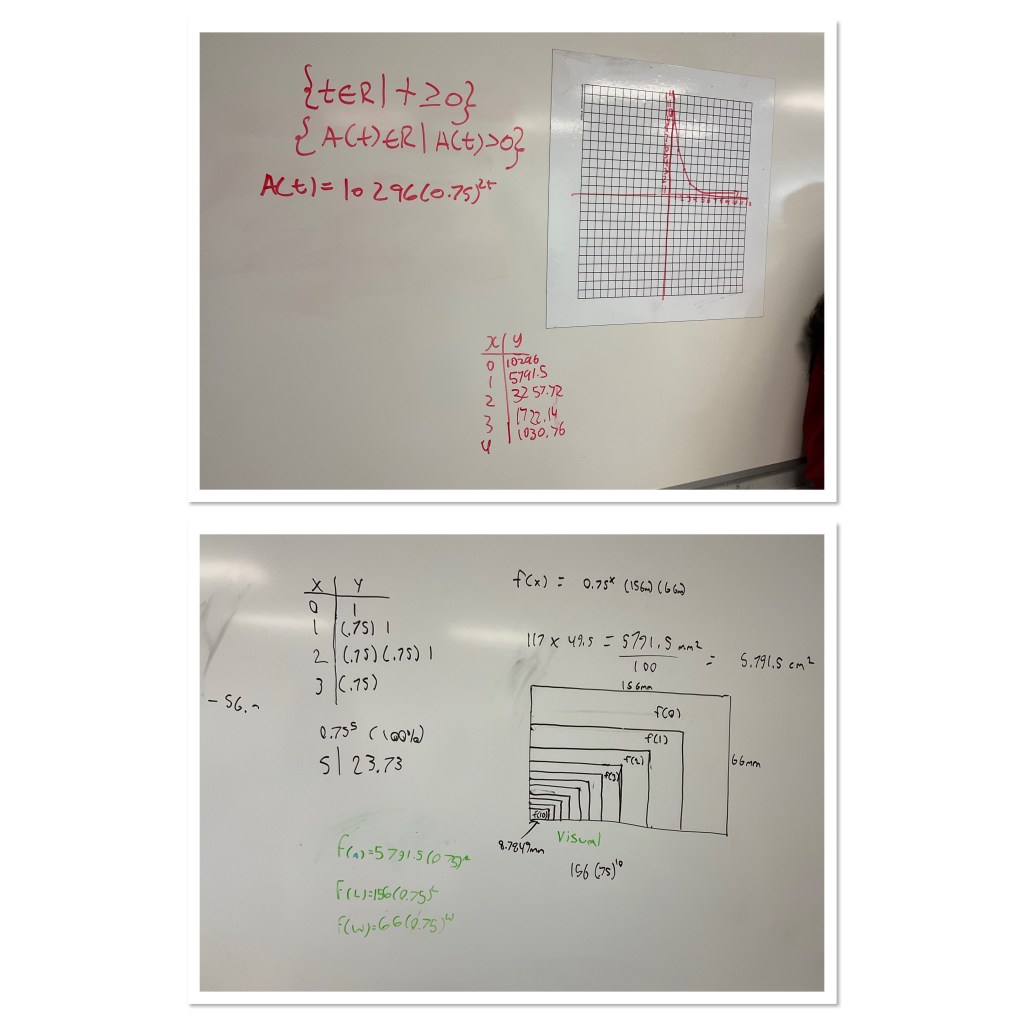 {t∈R | t ≥ 0}
{A(t)∈R | A(t)>0}
A(t) = 10296(0.75)²ᵗ
x | y
0 | 10296
1 | 5791.5
2 | 3257.72
3 | 1722.14
4 | 1030.76
x | y
0 | 1
1 | (.75) 1
2 | (.75)(.75) 1
3 | (.75)
- 56.
0.75⁵ (100%)
5 | 23.73
f(x) = 0.75ˣ (156m) (66m)
117 x 49.5 = 5791.5 mm² / 100 = 5.791.5 cm²
156mm
f(0)
f(1)
f(2)
f(3)
f(10)
66mm
8.7849mm
Visual
156 (75)¹⁰
f(a)=5791.5(0.75)ᵃ
f(L)=156(0.75)ᴸ
f(w)=66(0.75)ʷ